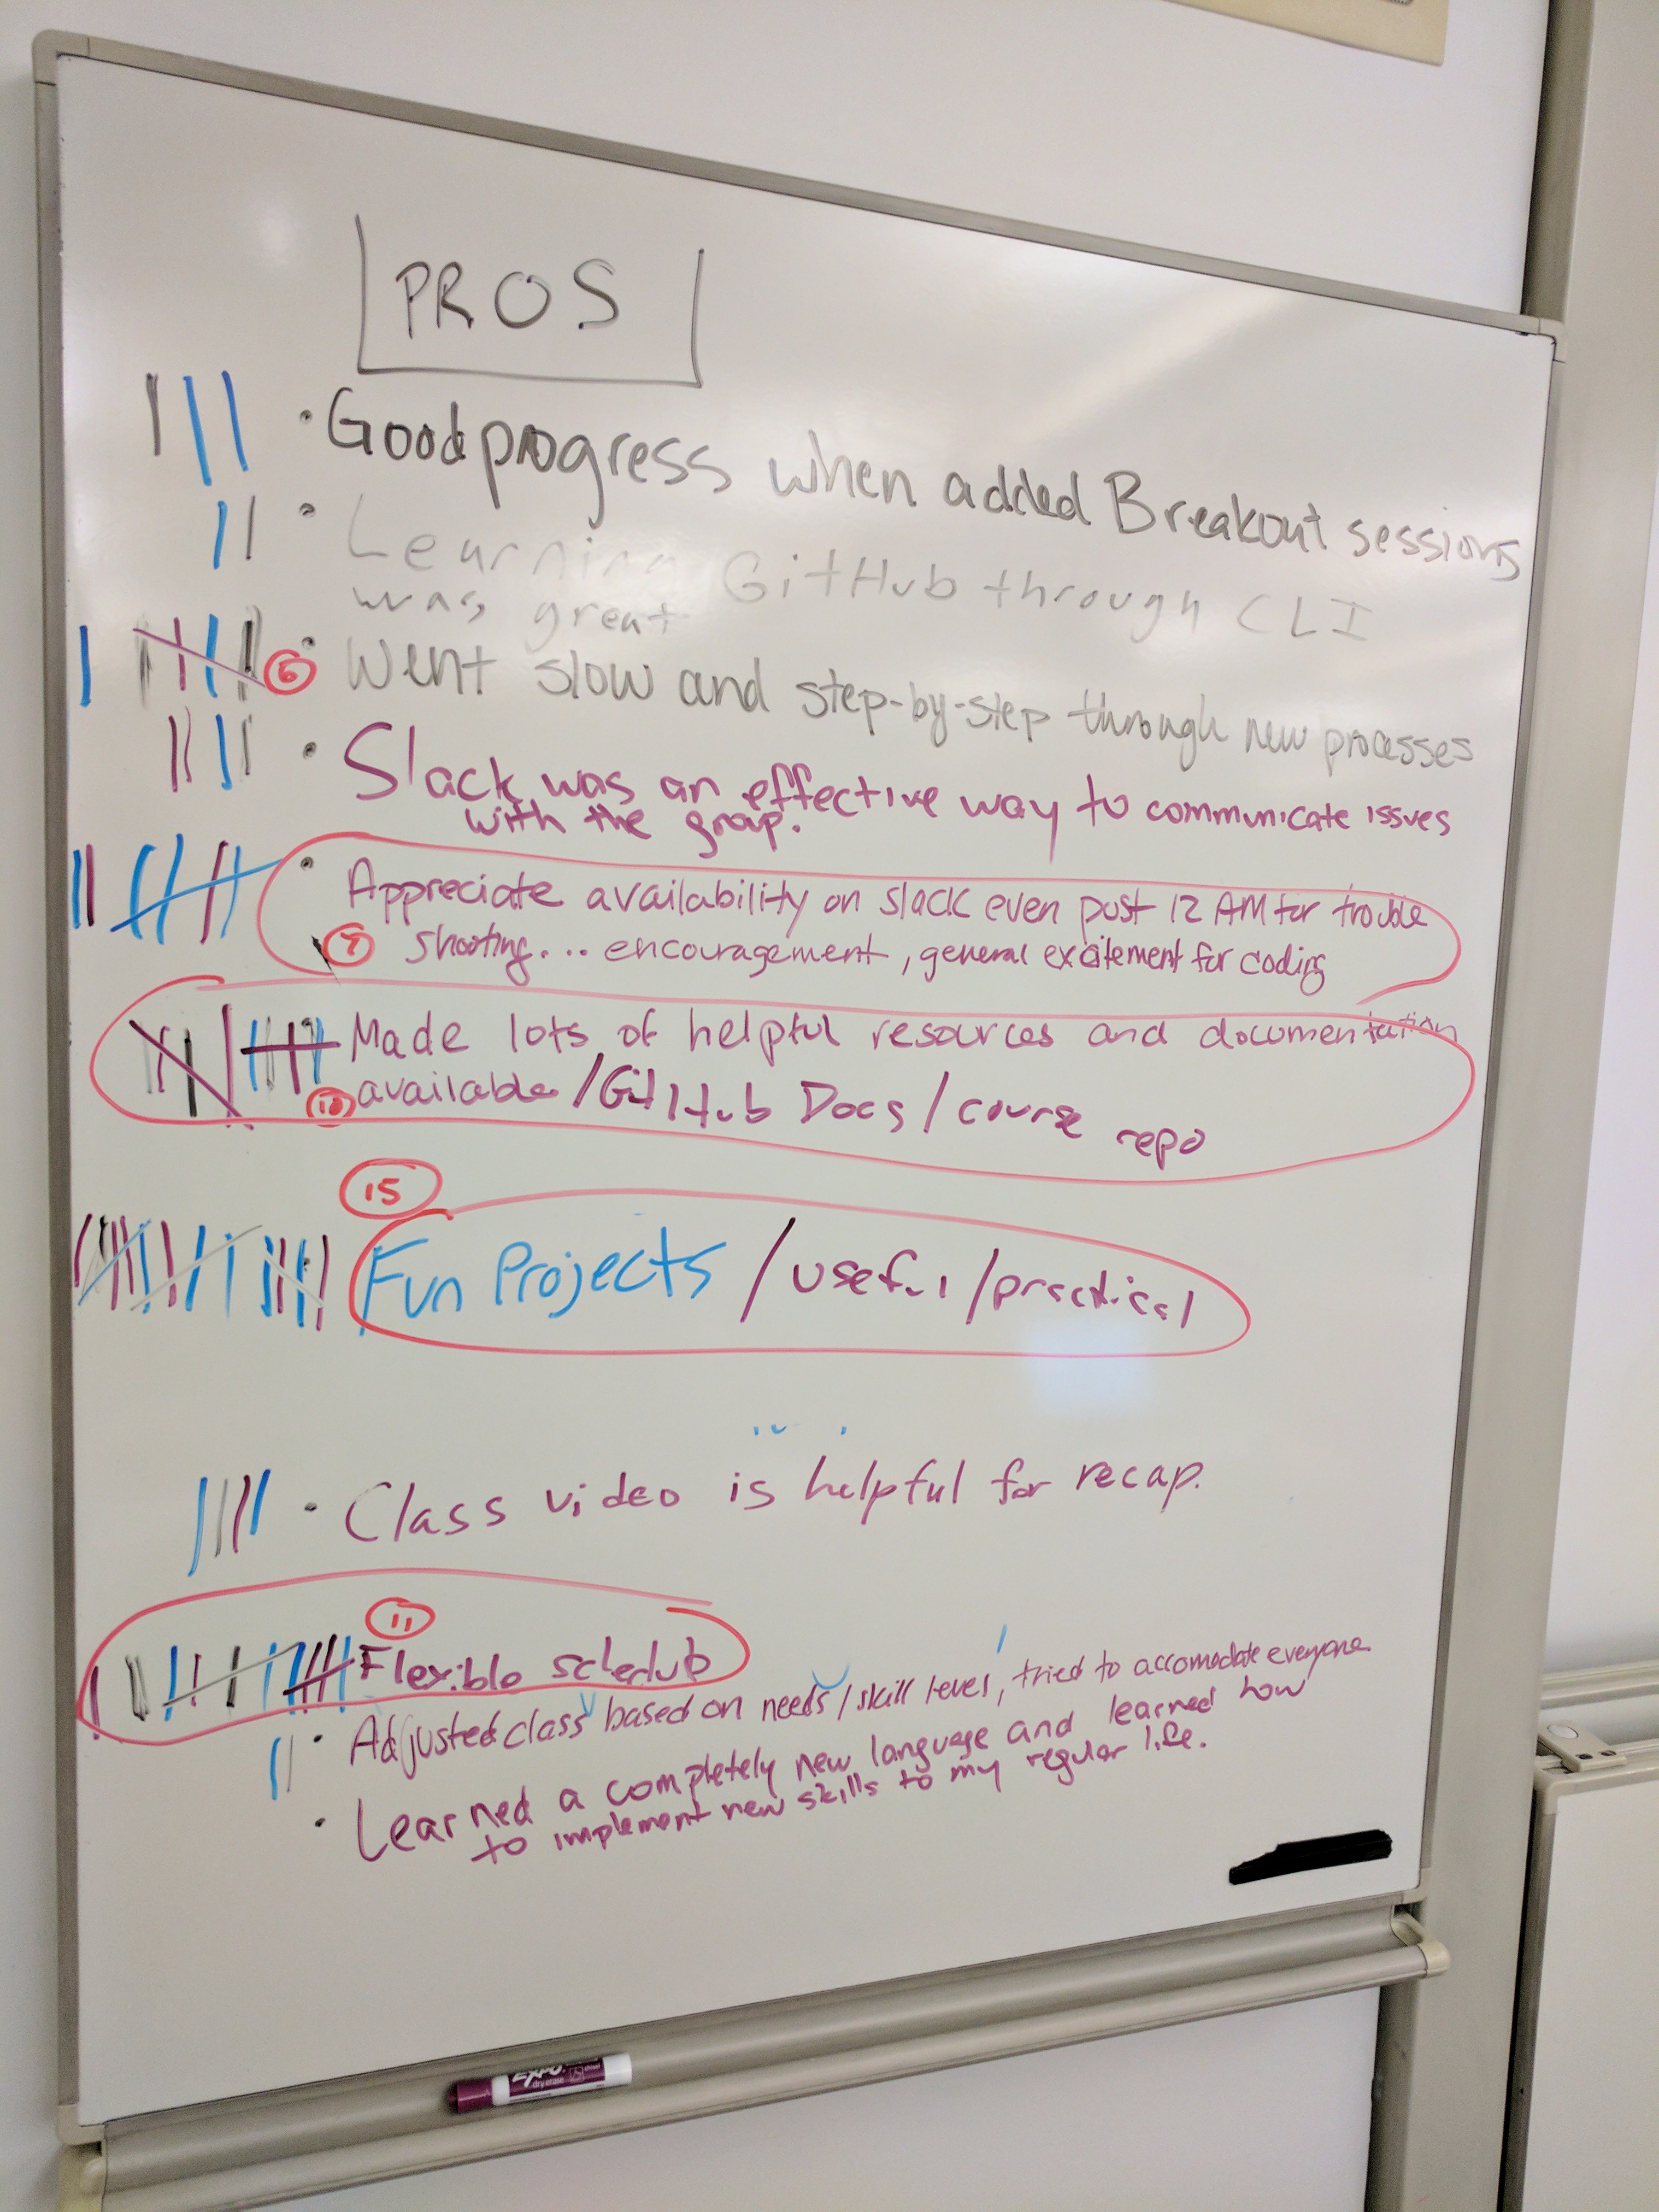 PROS
• Good progress when added Breakout sessions
• Learning GitHub through CLI
was great
6 • Went slow and step-by-step through new processes
• Slack was an effective way to communicate issues
with the group.
• Appreciate availability on slack even past 12 AM for trouble
shooting... encouragement, general excitement for coding
Made lots of helpful resources and documentation
10 available /GitHub Docs / course repo
15
Fun Projects / useful / practical
• Class video is helpful for recap.
11
Flexible
• Adjusted class based on needs / skill level, tried to accomodate everyone
• Learned a completely new language and learned how
to implement new skills to my regular life.
EXPO
dry erase